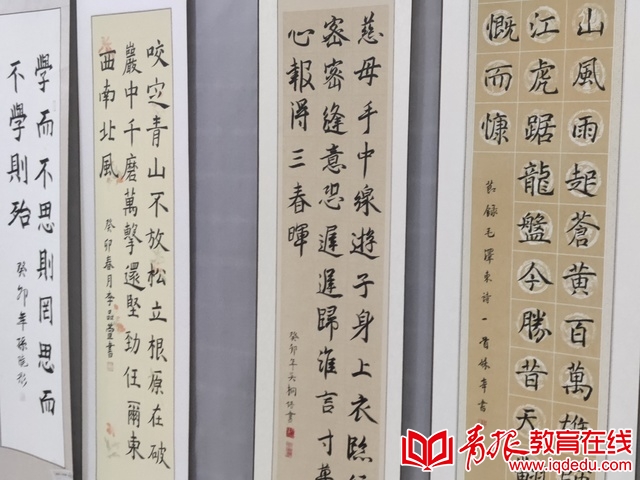 學而不思則罔思而
不學則殆
癸卯年孫
咬定青山不放松立根原在破
巖中千磨萬擊還堅勁任爾東
西南北風
癸卯春月李品萱書
慈母手中線遊子身上衣臨
密密縫意恐遲遲歸誰言寸
心報得三春暉
癸卯年吴桐竹書
山風雨起蒼黃百萬雄
江虎踞龍盤今勝昔天
慨而慷
節録毛澤東詩一首
青报教育在线
www.iqdedu.com